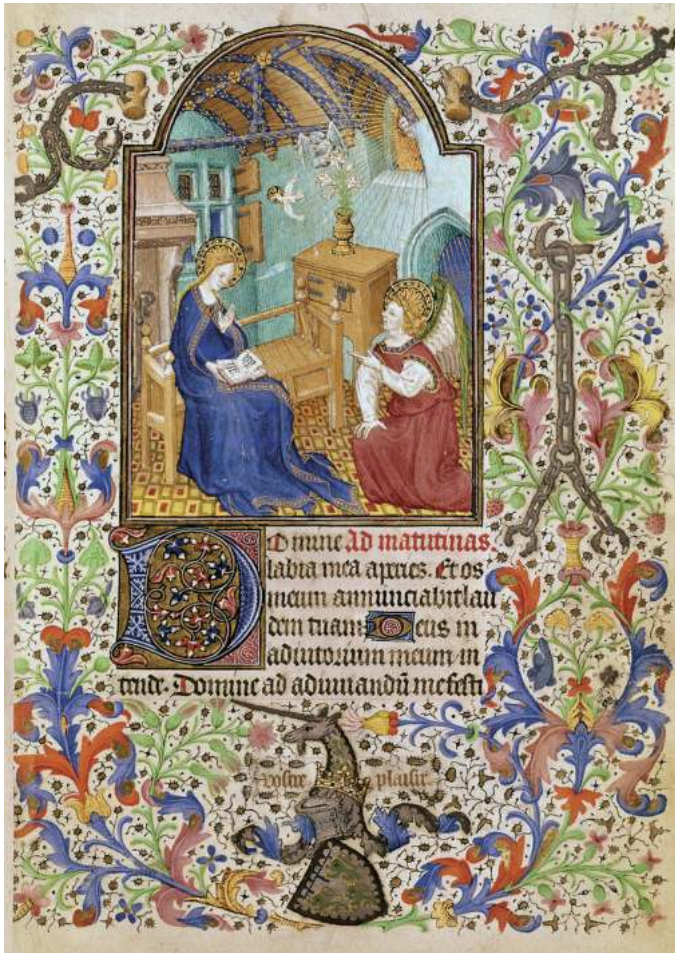 Domine Ad matutinas.
labia mea aperies. Et os
meum annunciabit lau
dem tuam Deus in
adiutorium meum in
tende. Domine ad adiuuandū me festi
vostre plaisir